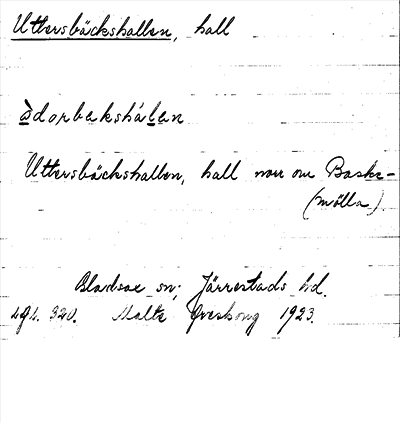 Uttersbäckshallen, hall
àdorbakshálan
Uttersbäckshallen, hall norr om Baske-
(mölla).
sn; Järrestads hd.
Lgl. 320. Malte 1923.